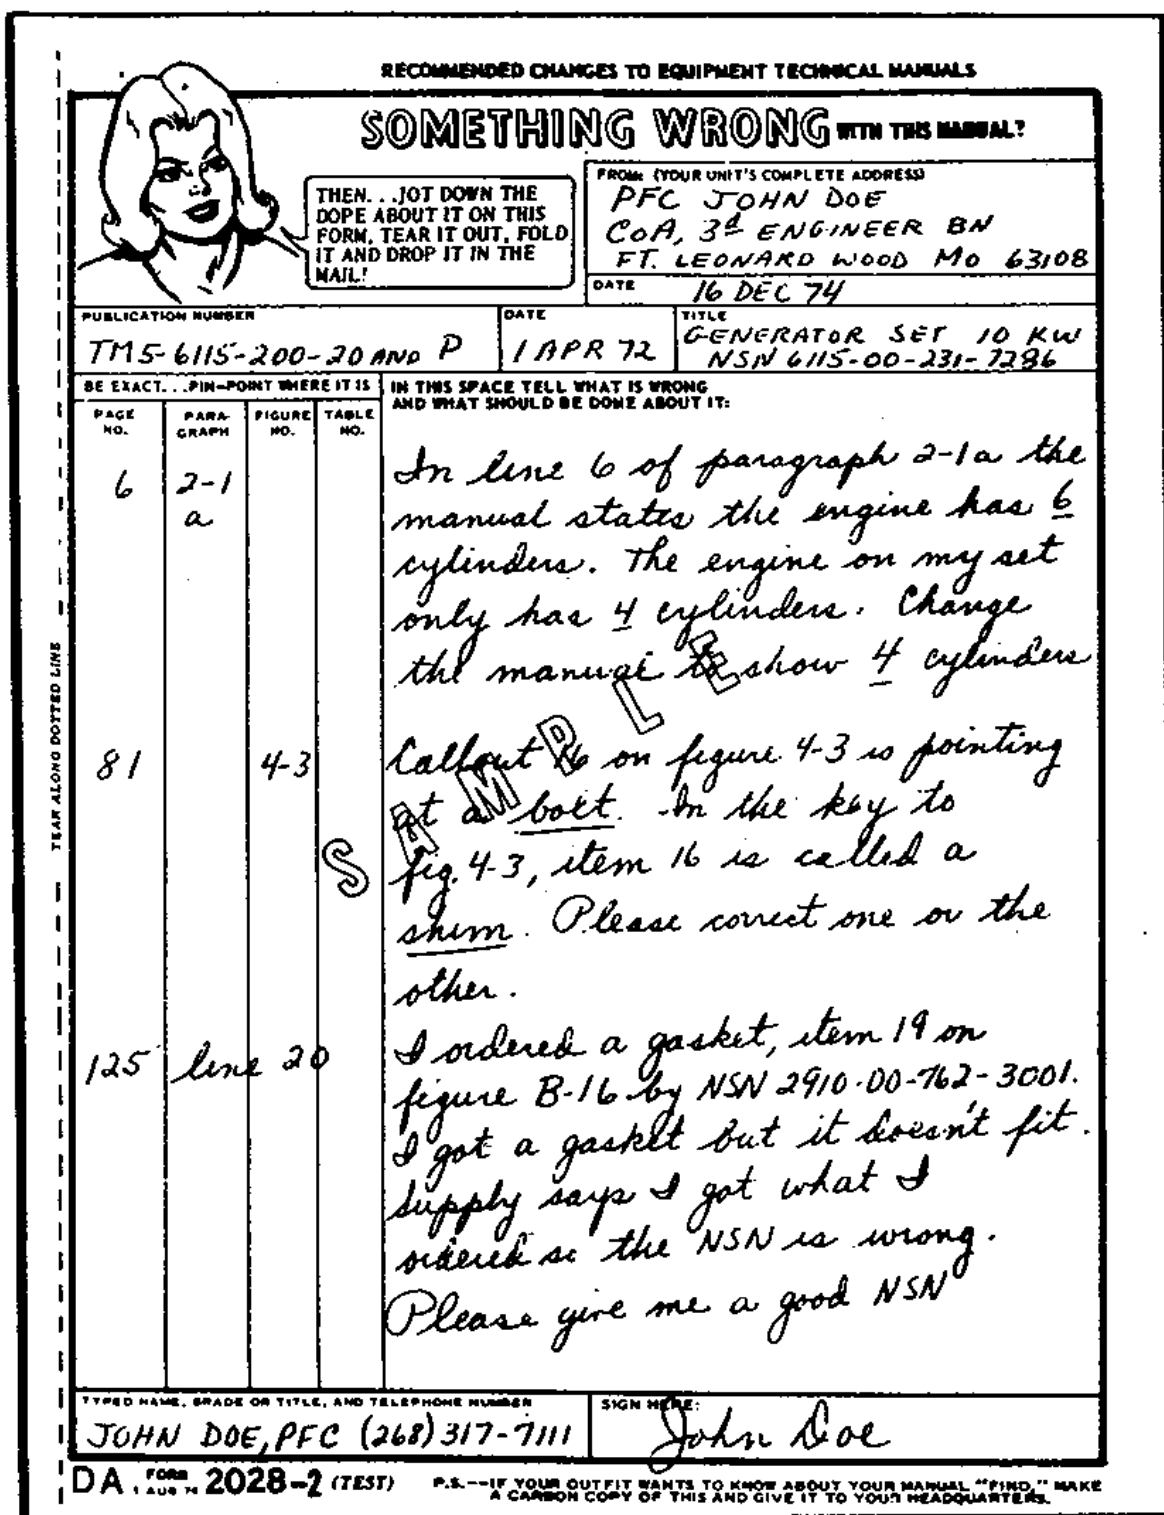 RECOMMENDED CHANGES TO EQUIPMENT TECHNICAL MANUALS
SOMETHING WRONG WITH THIS MANUAL?
THEN. . .JOT DOWN THE
DOPE ABOUT IT ON THIS
FORM, TEAR IT OUT, FOLD
IT AND DROP IT IN THE
MAIL!
FROM: (YOUR UNIT'S COMPLETE ADDRESS)
PFC JOHN DOE
CoA, 3d ENGINEER BN
FT. LEONARD WOOD MO 63108
DATE
16 DEC 74
PUBLICATION NUMBER
TM5-6115-200-20 AND P
DATE
1 APR 72
TITLE
GENERATOR SET 10 KW
NSN 6115-00-231-7286
BE EXACT. . .PIN-POINT WHERE IT IS
PAGE NO.
PARA- GRAPH
FIGURE NO.
TABLE NO.
IN THIS SPACE TELL WHAT IS WRONG
AND WHAT SHOULD BE DONE ABOUT IT:
6 2-1 a
In line 6 of paragraph 2-1a the
manual states the engine has 6
cylinders. The engine on my set
only has 4 cylinders. Change
the manual to show 4 cylinders
81 4-3
Callout 16 on figure 4-3 is pointing
at a bolt. In the key to
fig. 4-3, item 16 is called a
shim. Please correct one or the
other.
125 line 20
I ordered a gasket, item 19 on
figure B-16 by NSN 2910-00-762-3001.
I got a gasket but it doesn't fit.
Supply says I got what I
ordered so the NSN is wrong.
Please give me a good NSN
SAMPLE
TEAR ALONG DOTTED LINE
TYPED NAME, GRADE OR TITLE, AND TELEPHONE NUMBER
JOHN DOE, PFC (268) 317-7111
SIGN HERE:
John Doe
DA FORM 1 AUG 74 2028-2 (TEST)
P.S.--IF YOUR OUTFIT WANTS TO KNOW ABOUT YOUR MANUAL "FIND," MAKE
A CARBON COPY OF THIS AND GIVE IT TO YOUR HEADQUARTERS.